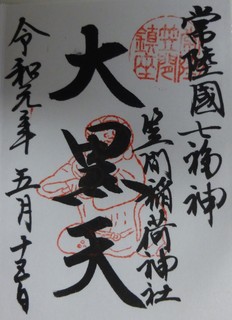 常陸國七福神
笠間稲荷神社
笠間
鎮座
大黒天
令和元年五月十五日